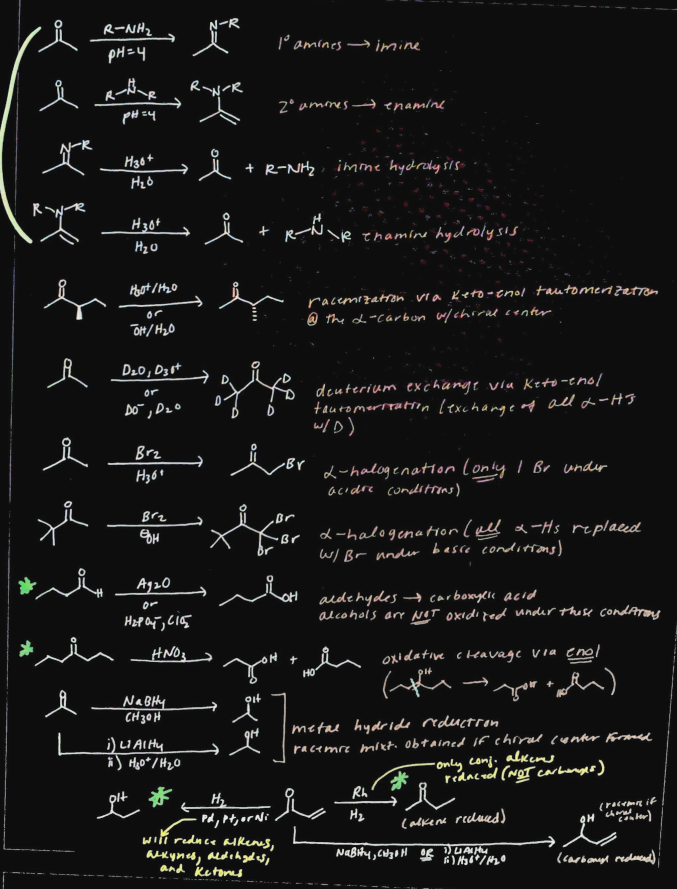 O R-NH2 pH=4 N-R 1° amines → imine
O R-N-R H pH=4 R-N-R 2° amines → enamine
N-R H3O+ H2O O + R-NH2 imine hydrolysis
R-N-R H3O+ H2O O + R-N-R H enamine hydrolysis
O H3O+/H2O or -OH/H2O O racemization via keto-enol tautomerization
@ the α-carbon w/chiral center
O D2O, D3O+ or DO-, D2O O D D D D D D deuterium exchange via keto-enol
tautomerization (exchange of all α-Hs
w/D)
O Br2 H3O+ O Br α-halogenation (only 1 Br under
acidic conditions)
O Br2 ⊖OH O Br Br Br α-halogenation (all α-Hs replaced
w/Br under basic conditions)
O H Ag2O or H2PO4-, ClO2- O OH aldehydes → carboxylic acid
alcohols are NOT oxidized under these conditions
O HNO3 O OH + O HO oxidative cleavage via enol
( OH → O OH + O HO )
O NaBH4 CH3OH OH
i) LiAlH4 ii) H3O+/H2O OH
metal hydride reduction
racemic mixt. obtained if chiral center formed
only conj. alkenes
reduced (NOT carbonyls)
OH H2 Pd, Pt, or Ni O Rh H2 O
(alkene reduced)
will reduce alkenes,
alkynes, aldehydes,
and ketones
NaBH4, CH3OH OR i) LiAlH4
ii) H3O+/H2O
OH (racemic if
chiral
center)
(carbonyl reduced)